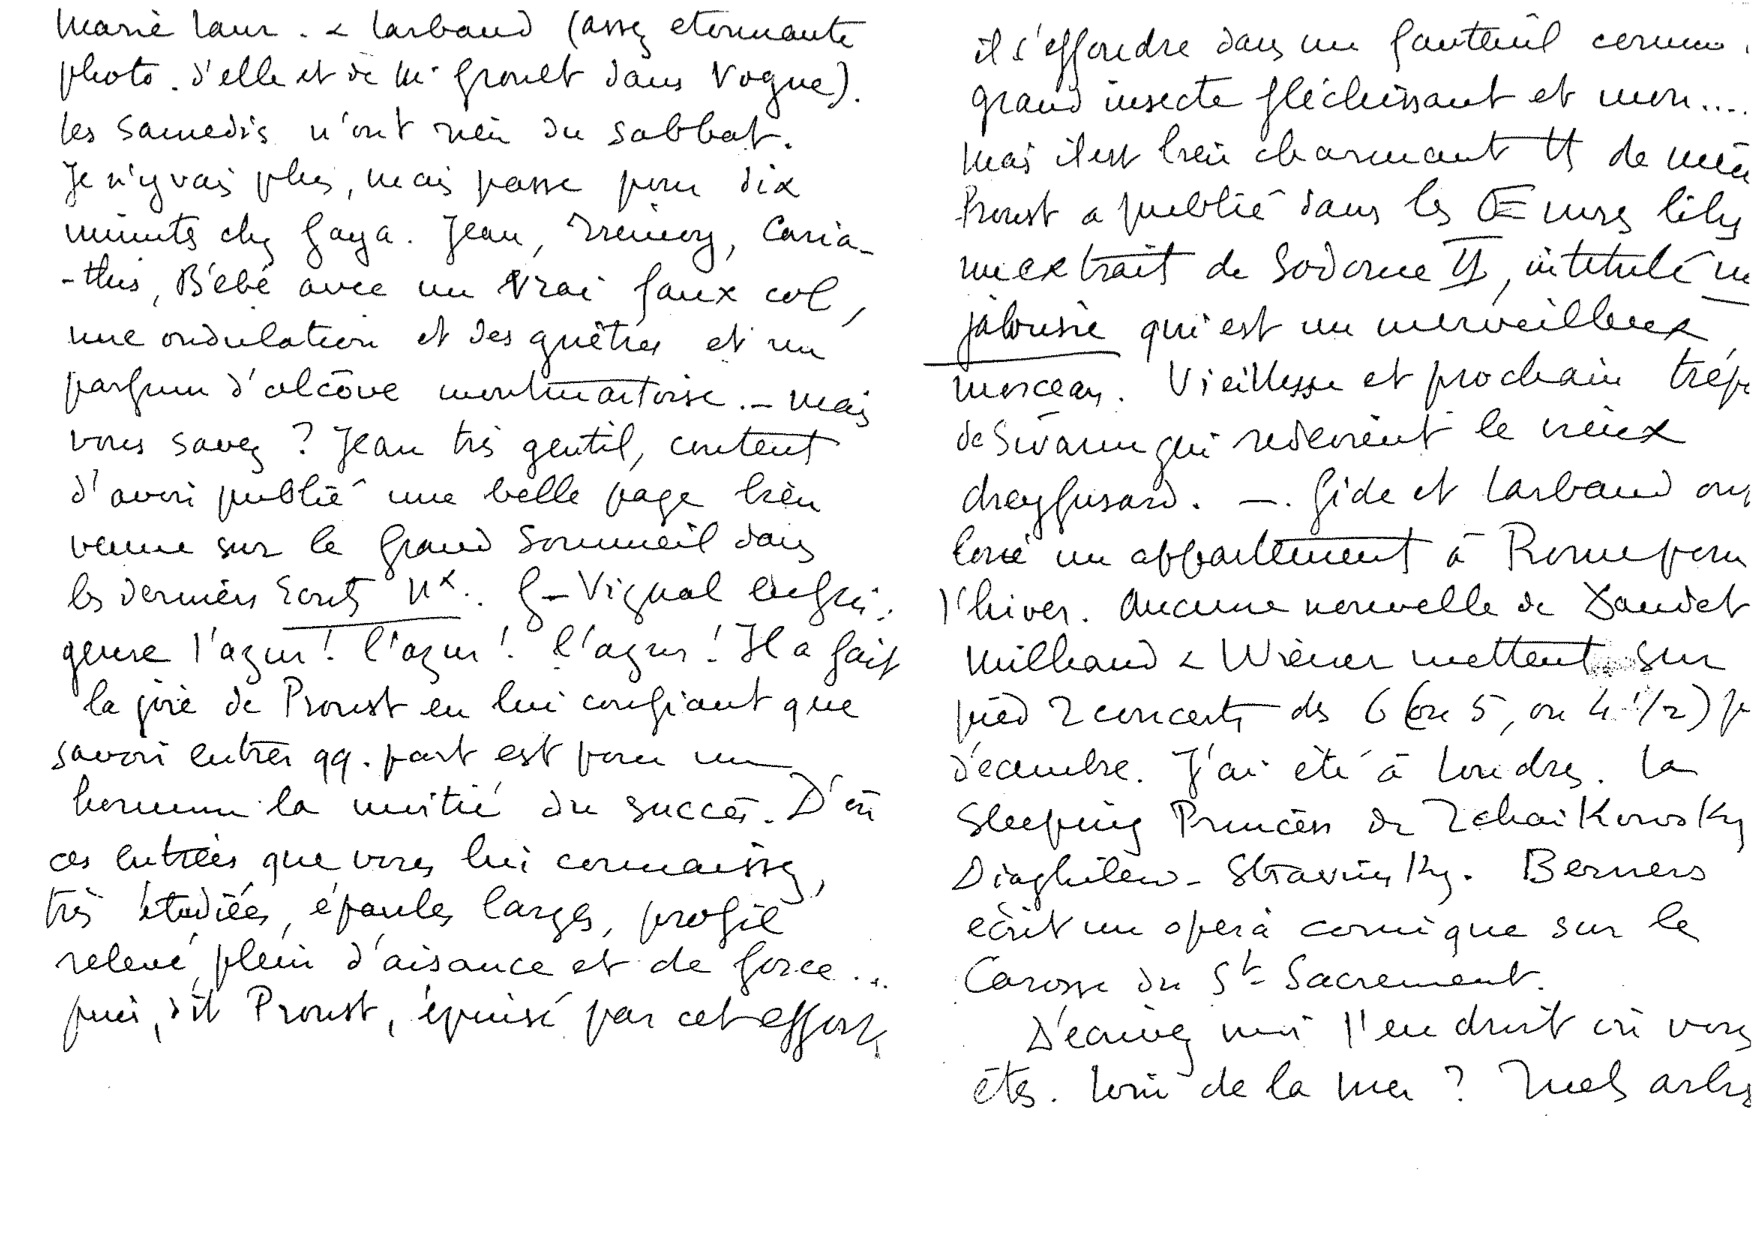 Marie Laur. & Larbaud (assez etonnante
photo. d'elle et de Mr Groult dans Vogue).
les Samedis n'ont rien du sabbat.
Je n'y vais plus, mais passe pour dix
minutes chez Gaya. Jean, Caria-
-this, Bébé avec un vrai faux col,
une ondulation et des guêtres et un
parfum d'alcôve montmartoise. – mais
vous savez ? Jean très gentil, content
d'avoir publié une belle page bien
venue sur le Grand Sommeil dans
les derniers Ecrits Nx. G–Vignal
genre l'azur ! l'azur ! l'azur ! Il a fait
la joie de Proust en lui confiant que
savoir entrer qq. part est pour un
homme la moitié du succès. D'où
ces entrées que vous lui connaissez,
très étudiées, épaules larges, profil
relevé, plein d'aisance et de force...
puis, dit Proust, épuisé par cet effort,
il s'effondre dans un fauteuil comme
grand insecte fléchissant et mou....
Mais il est bien charmant tt de
Proust a publié dans les Œuvres libres
un extrait de Sodome II, intitulé
jalousie qui est un merveilleux
morceau. Vieillesse et prochain
de Swann qui redevient le vieux
dreyfusard. —. Gide et Larbaud ont
loué un appartement à Rome pour
l'hiver. Aucune nouvelle de Daudet
Milhaud & Wiener mettent sur
pied 2 concerts des 6 (ou 5, ou 4 1/2) p
décembre. J'ai été à Londres. La
Sleeping Princess de Tchaikowsky
Diaghilew – Stravinsky. Berners
écrit un opera comique sur le
Carosse du St Sacrement.
Décrivez moi l'endroit où vous
êtes. Loin de la mer ? Quels arbres